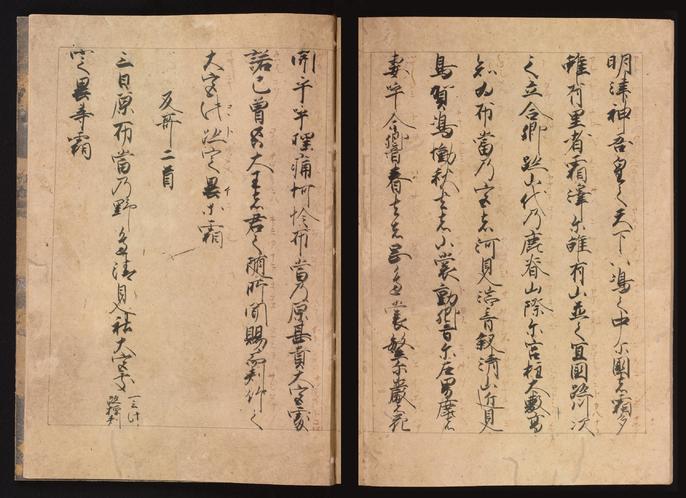 明津神吾皇之天下八嶋之中尓國者霜多
雖有里者霜澤尓雖有山並之宜國跡川次
之立合郷跡山代乃鹿脊山際尓宮柱太敷高
知為布當乃宮者河見湍音叙清山近見
鳥賀鳴慟秋去者山裳動響尓左男鹿者
妻呼令響春去者岡邊裳繁尓巖花
開乎呼理痛怜布當乃原甚貴大宮處
諾己曽吾大王者君之随所聞賜而刺竹乃
大宮此跡定異等霜
反哥二首
三日原布當乃野邊清見社大宮處 一云此
跡標刺
定異等霜